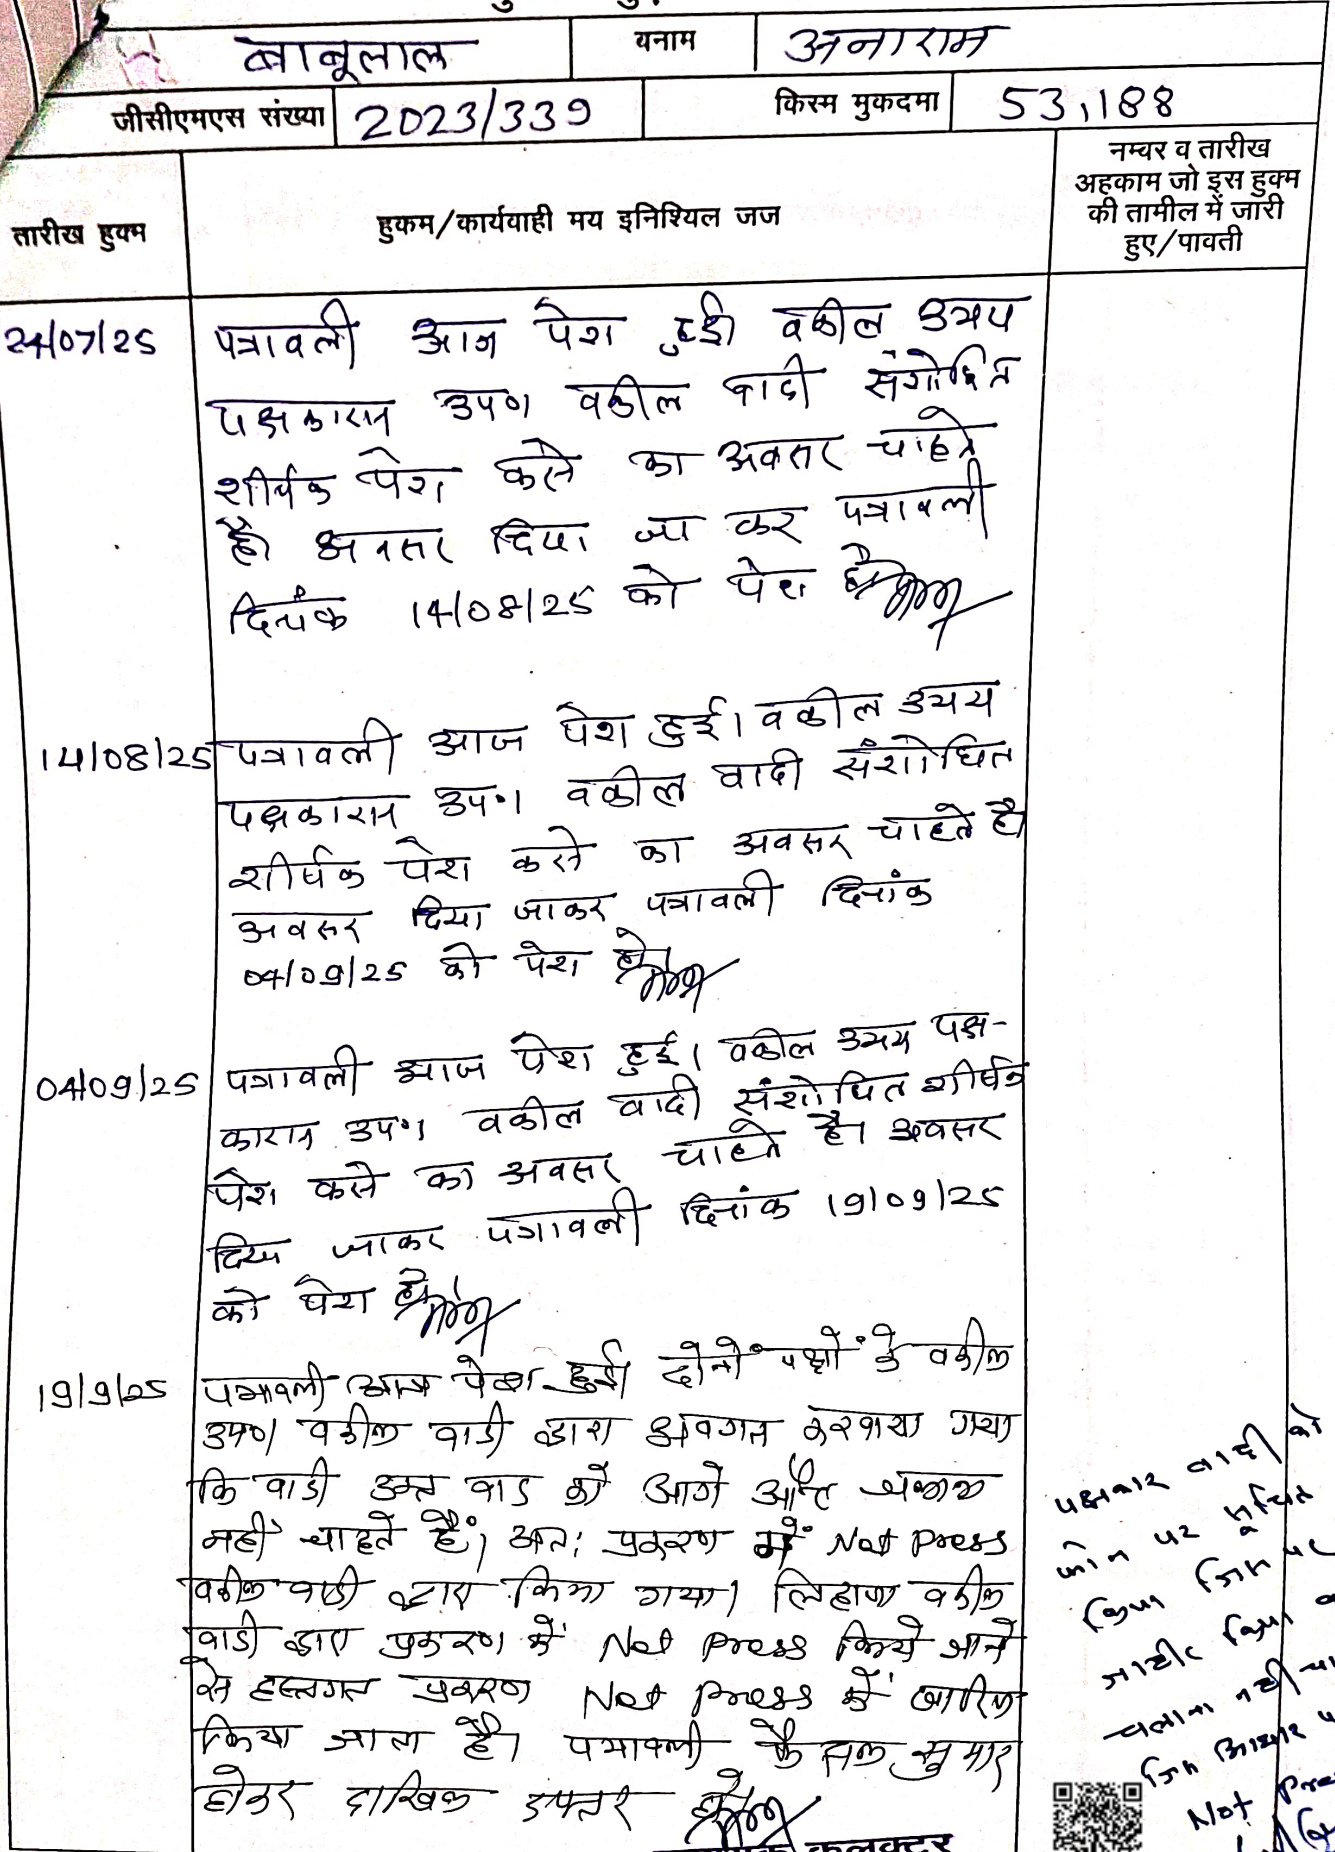 बाबूलाल
बनाम
अनाराम
जीसीएमएस संख्या
2023/339
किस्म मुकदमा
53,188
तारीख हुक्म
हुकम/कार्यवाही मय इनिश्यिल जज
नम्बर व तारीख
अहकाम जो इस हुक्म
की तामील में जारी
हुए/पावती
24/07/25
पत्रावली आज पेश हुई वकील उभय
पक्षकारान उप० वकील वादी संशोधित
शीर्षक पेश करने का अवसर चाहते
है। अवसर दिया जा कर पत्रावली
दिनांक 14/08/25 को पेश हो
14/08/25
पत्रावली आज पेश हुई। वकील उभय
पक्षकारान उप०। वकील वादी संशोधित
शीर्षक पेश करने का अवसर चाहते है।
अवसर दिया जाकर पत्रावली दिनांक
04/09/25 को पेश हो।
04/09/25
पत्रावली आज पेश हुई। वकील उभय पक्ष-
कारान उप०। वकील वादी संशोधित शीर्षक
पेश करने का अवसर चाहते है। अवसर
दिया जाकर पत्रावली दिनांक 19/09/25
को पेश हो।
19/9/25
पत्रावली आज पेश हुई। दोनो पक्षों के वकील
उप०। वकील वादी द्वारा अवगत करवाया गया
कि वादी उक्त वाद को आगे और चलाना
नहीं चाहते हैं। अतः प्रकरण में Not Press
वकील वादी द्वारा किया गया। लिहाजा वकील
वादी द्वारा प्रकरण में Not Press किये जाने
से हस्तगत प्रकरण Not Press में खारिज
किया जाता है। पत्रावली फैसल सुमार
होकर दाखिल दफ्तर हो।
कलक्टर
पक्षकार वादी को
फोन पर सूचित
किया जिस पर
जाहीर किया
चलाना नही
जिस आधार
Not